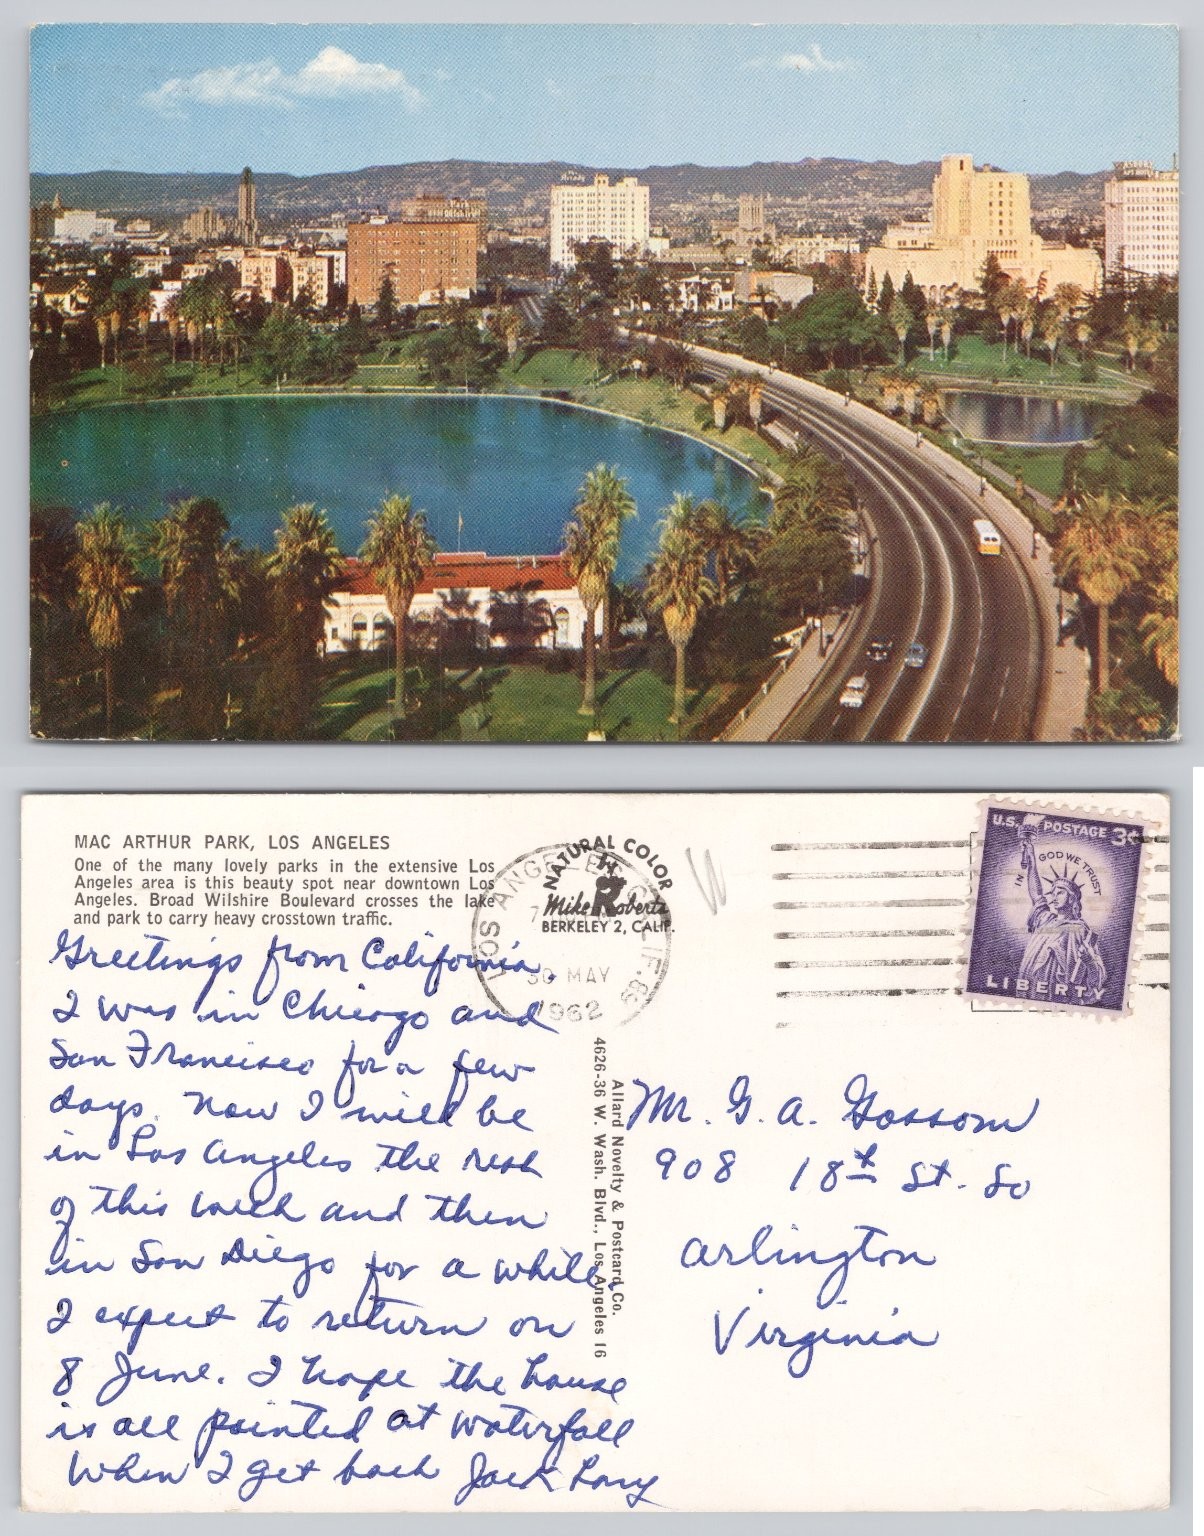 MAC ARTHUR PARK, LOS ANGELES
One of the many lovely parks in the extensive Los
Angeles area is this beauty spot near downtown Los
Angeles. Broad Wilshire Boulevard crosses the lake
and park to carry heavy crosstown traffic.
Greetings from California.
I was in Chicago and
San Francisco for a few
days. Now I will be
in Los Angeles the rest
of this week and then
in San Diego for a while.
I expect to return on
8 June. I hope the house
is all painted at Waterfall
When I get back Jack Long
NATURAL COLOR
by
Mike Roberts
BERKELEY 2, CALIF.
LOS ANGELES CALIF.
30 MAY
1962
U.S. POSTAGE 3¢
IN GOD WE TRUST
LIBERTY
Allard Novelty & Postcard Co.
4626-36 W. Wash. Blvd., Los Angeles 16
Mr. G. A. Gossom
908 18th St. So
Arlington
Virginia